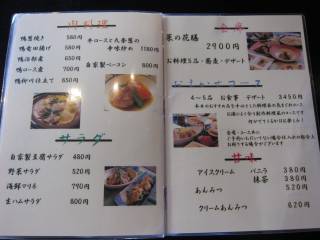 肉料理
580円
鴨竜田揚げ 580円
鴨治部煮 650円
鴨ロース煮 700円
鴨柳川仕立て 650円
牛ロースと九条葱の
辛味炒め 1180円
自家製ベーコン 800円
サラダ
自家製豆腐サラダ 480円
野菜サラダ 520円
海鮮マリネ 790円
生ハムサラダ 800円
会席
菜の花膳
2900円
お料理5品・蕎麦・デザート
おまかせコース
4〜5品 お食事 デザート 3450円
甘味
アイスクリーム バニラ 380円
抹茶 380円
あんみつ 520円
クリームあんみつ 620円